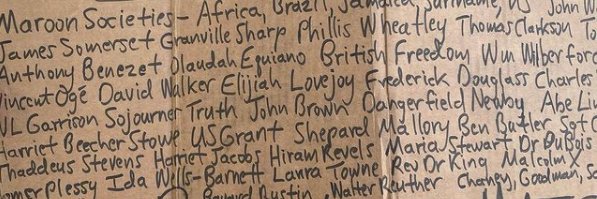 Maroon Societies - Africa, Brazil, Jamaica, Suriname, US John W
James Somerset Granville Sharp Phillis Wheatley Thomas Clarkson To
Anthony Benezet Olaudah Equiano British Freedom Wm Wilberfor
Vincent Ogé David Walker Elijiah Lovejoy Frederick Douglass Charles
WL Garrison Sojourner Truth John Brown Dangerfield Newby Abe Li
Harriet Beecher Stowe US Grant Shepard Mallory Ben Butler Sgt C
Thaddeus Stevens Harriet Jacobs Hiram Revels Maria Stewart Dr DuBois
omer Plessy Ida Wells-Barnett Laura Towne Rev Dr King Malcolm X
Bayard Rustin Walter Reuther Chaney, Goodman, S